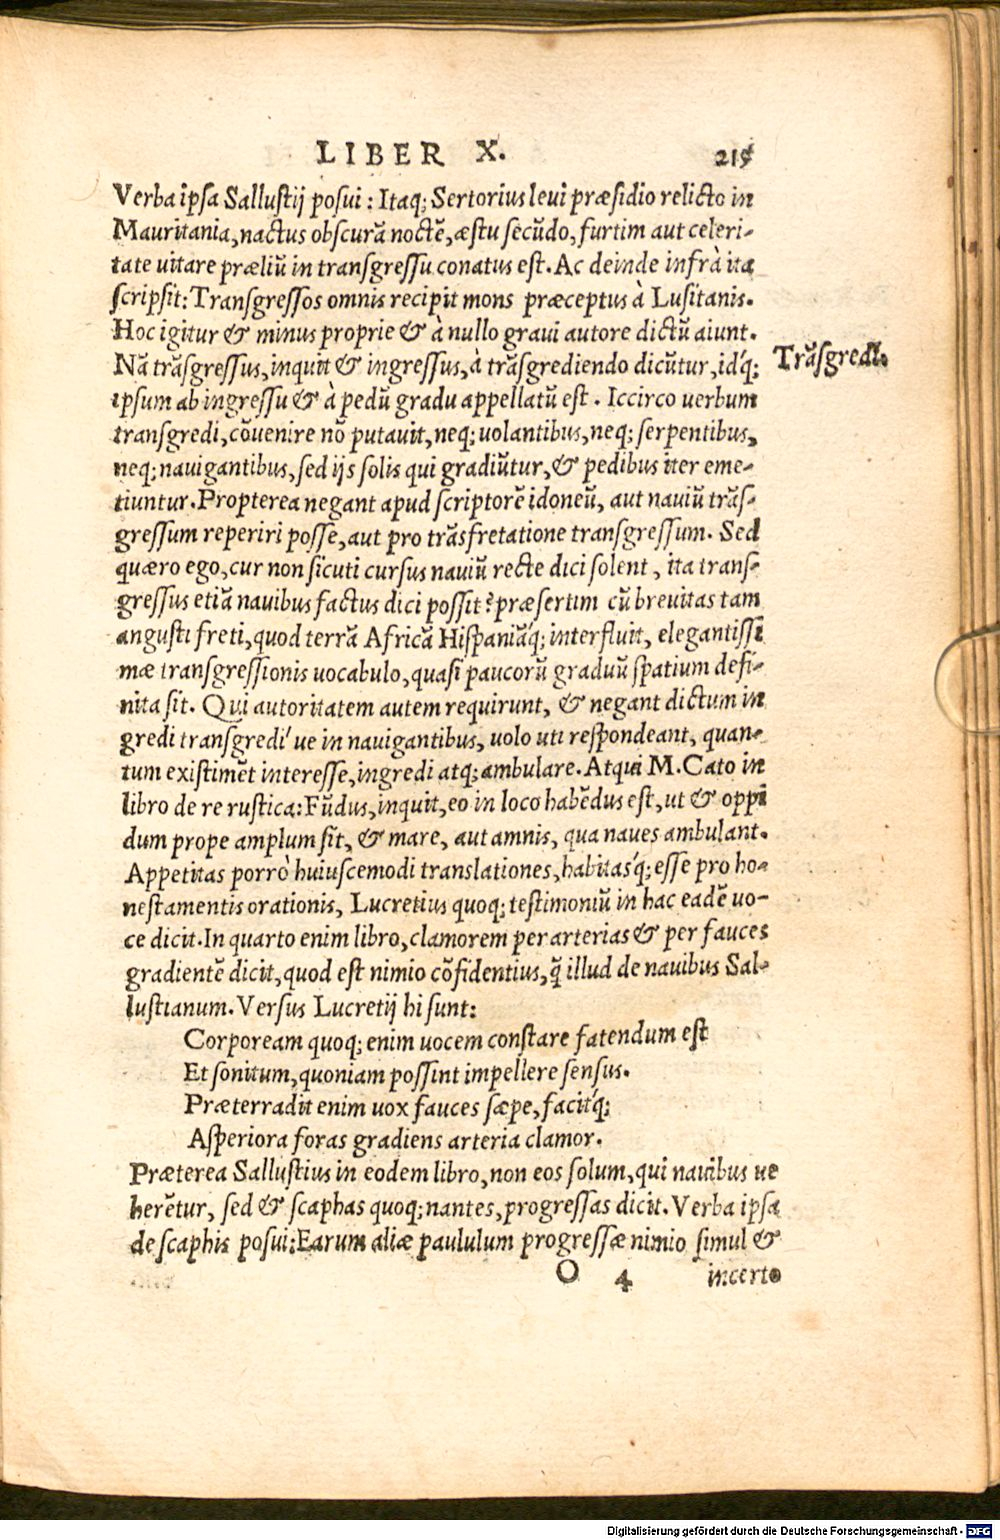 LIBER X. 215
Verba ipsa Sallustij posui: Itaq; Sertorius levi præsidio relicto in
Mauritania, nactus obscurā noctē, æstu secūdo, furtim aut celeri-
tate vitare præliū in transgressu conatus est. Ac deinde infrà ita
scripsit: Transgressos omnis recipit mons præceptus à Lusitanis.
Hoc igitur & minus proprie & à nullo gravi autore dictū aiunt.
Nā trāsgressus, inquit & ingressus, à trāsgrediendo dicūtur, idq́;
Trāsgredi.
ipsum ab ingressu & à pedū gradu appellatū est. Iccirco verbum
transgredi, cōvenire nō putavit, neq; uolantibus, neq; serpentibus,
neq; navigantibus, sed ijs solis qui gradiūtur, & pedibus iter eme-
tiuntur. Propterea negant apud scriptorē idoneū, aut naviū trās-
gressum reperiri posse, aut pro trāsfretatione transgressum. Sed
quæro ego, cur non sicuti cursus naviū recte dici solent, ita trans-
gressus etiā navibus factus dici possit? præsertim cū brevitas tam
angusti freti, quod terrā Africā Hispaniāq́; interfluit, elegantissi
mæ transgressionis vocabulo, quasi paucorū graduū spatium defi-
nita sit. Qui autoritatem autem requirunt, & negant dictum in
gredi transgredi ́ve in navigantibus, uolo uti respondeant, quan-
tum existimēt interesse, ingredi atq; ambulare. Atqui M. Cato in
libro de re rustica: Fūdus, inquit, eo in loco habēdus est, ut & oppi
dum prope amplum sit, & mare, aut amnis, qua naves ambulant.
Appetitas porrò huiuscemodi translationes, habitasq́; esse pro ho-
nestamentis orationis, Lucretius quoq; testimoniū in hac eadē uo-
ce dicit. In quarto enim libro, clamorem per arterias & per fauces
gradientē dicit, quod est nimio cōfidentius, q̄ illud de navibus Sal-
lustianum. Versus Lucretij hi sunt:
Corpoream quoq; enim uocem constare fatendum est
Et sonitum, quoniam possint impellere sensus.
Præterradit enim vox fauces sæpe, facitq́;
Asperiora foras gradiens arteria clamor.
Præterea Sallustius in eodem libro, non eos solum, qui navibus ve
herētur, sed & scaphas quoq; nantes, progressas dicit. Verba ipsa
de scaphis posui: Earum aliæ paululum progressæ nimio simul &
O 4 incerto
Digitalisierung gefördert durch die Deutsche Forschungsgemeinschaft - DFG